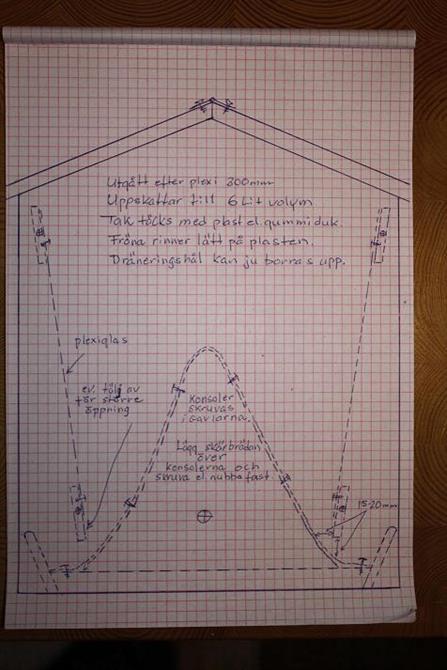 Utgått efter plexi 300mm
Uppskattar till 6 Lit volym
Tak täcks med plast el. gummiduk.
Fröna rinner lätt på plasten.
Dräneringshål kan ju borras upp.
plexiglas
ev. tälj av
för större
öppning
Konsoler
skruvas
i gavlarna.
Lägg skärbrädan
över
konsolerna och
skruva el. nubba fast.
15-20mm